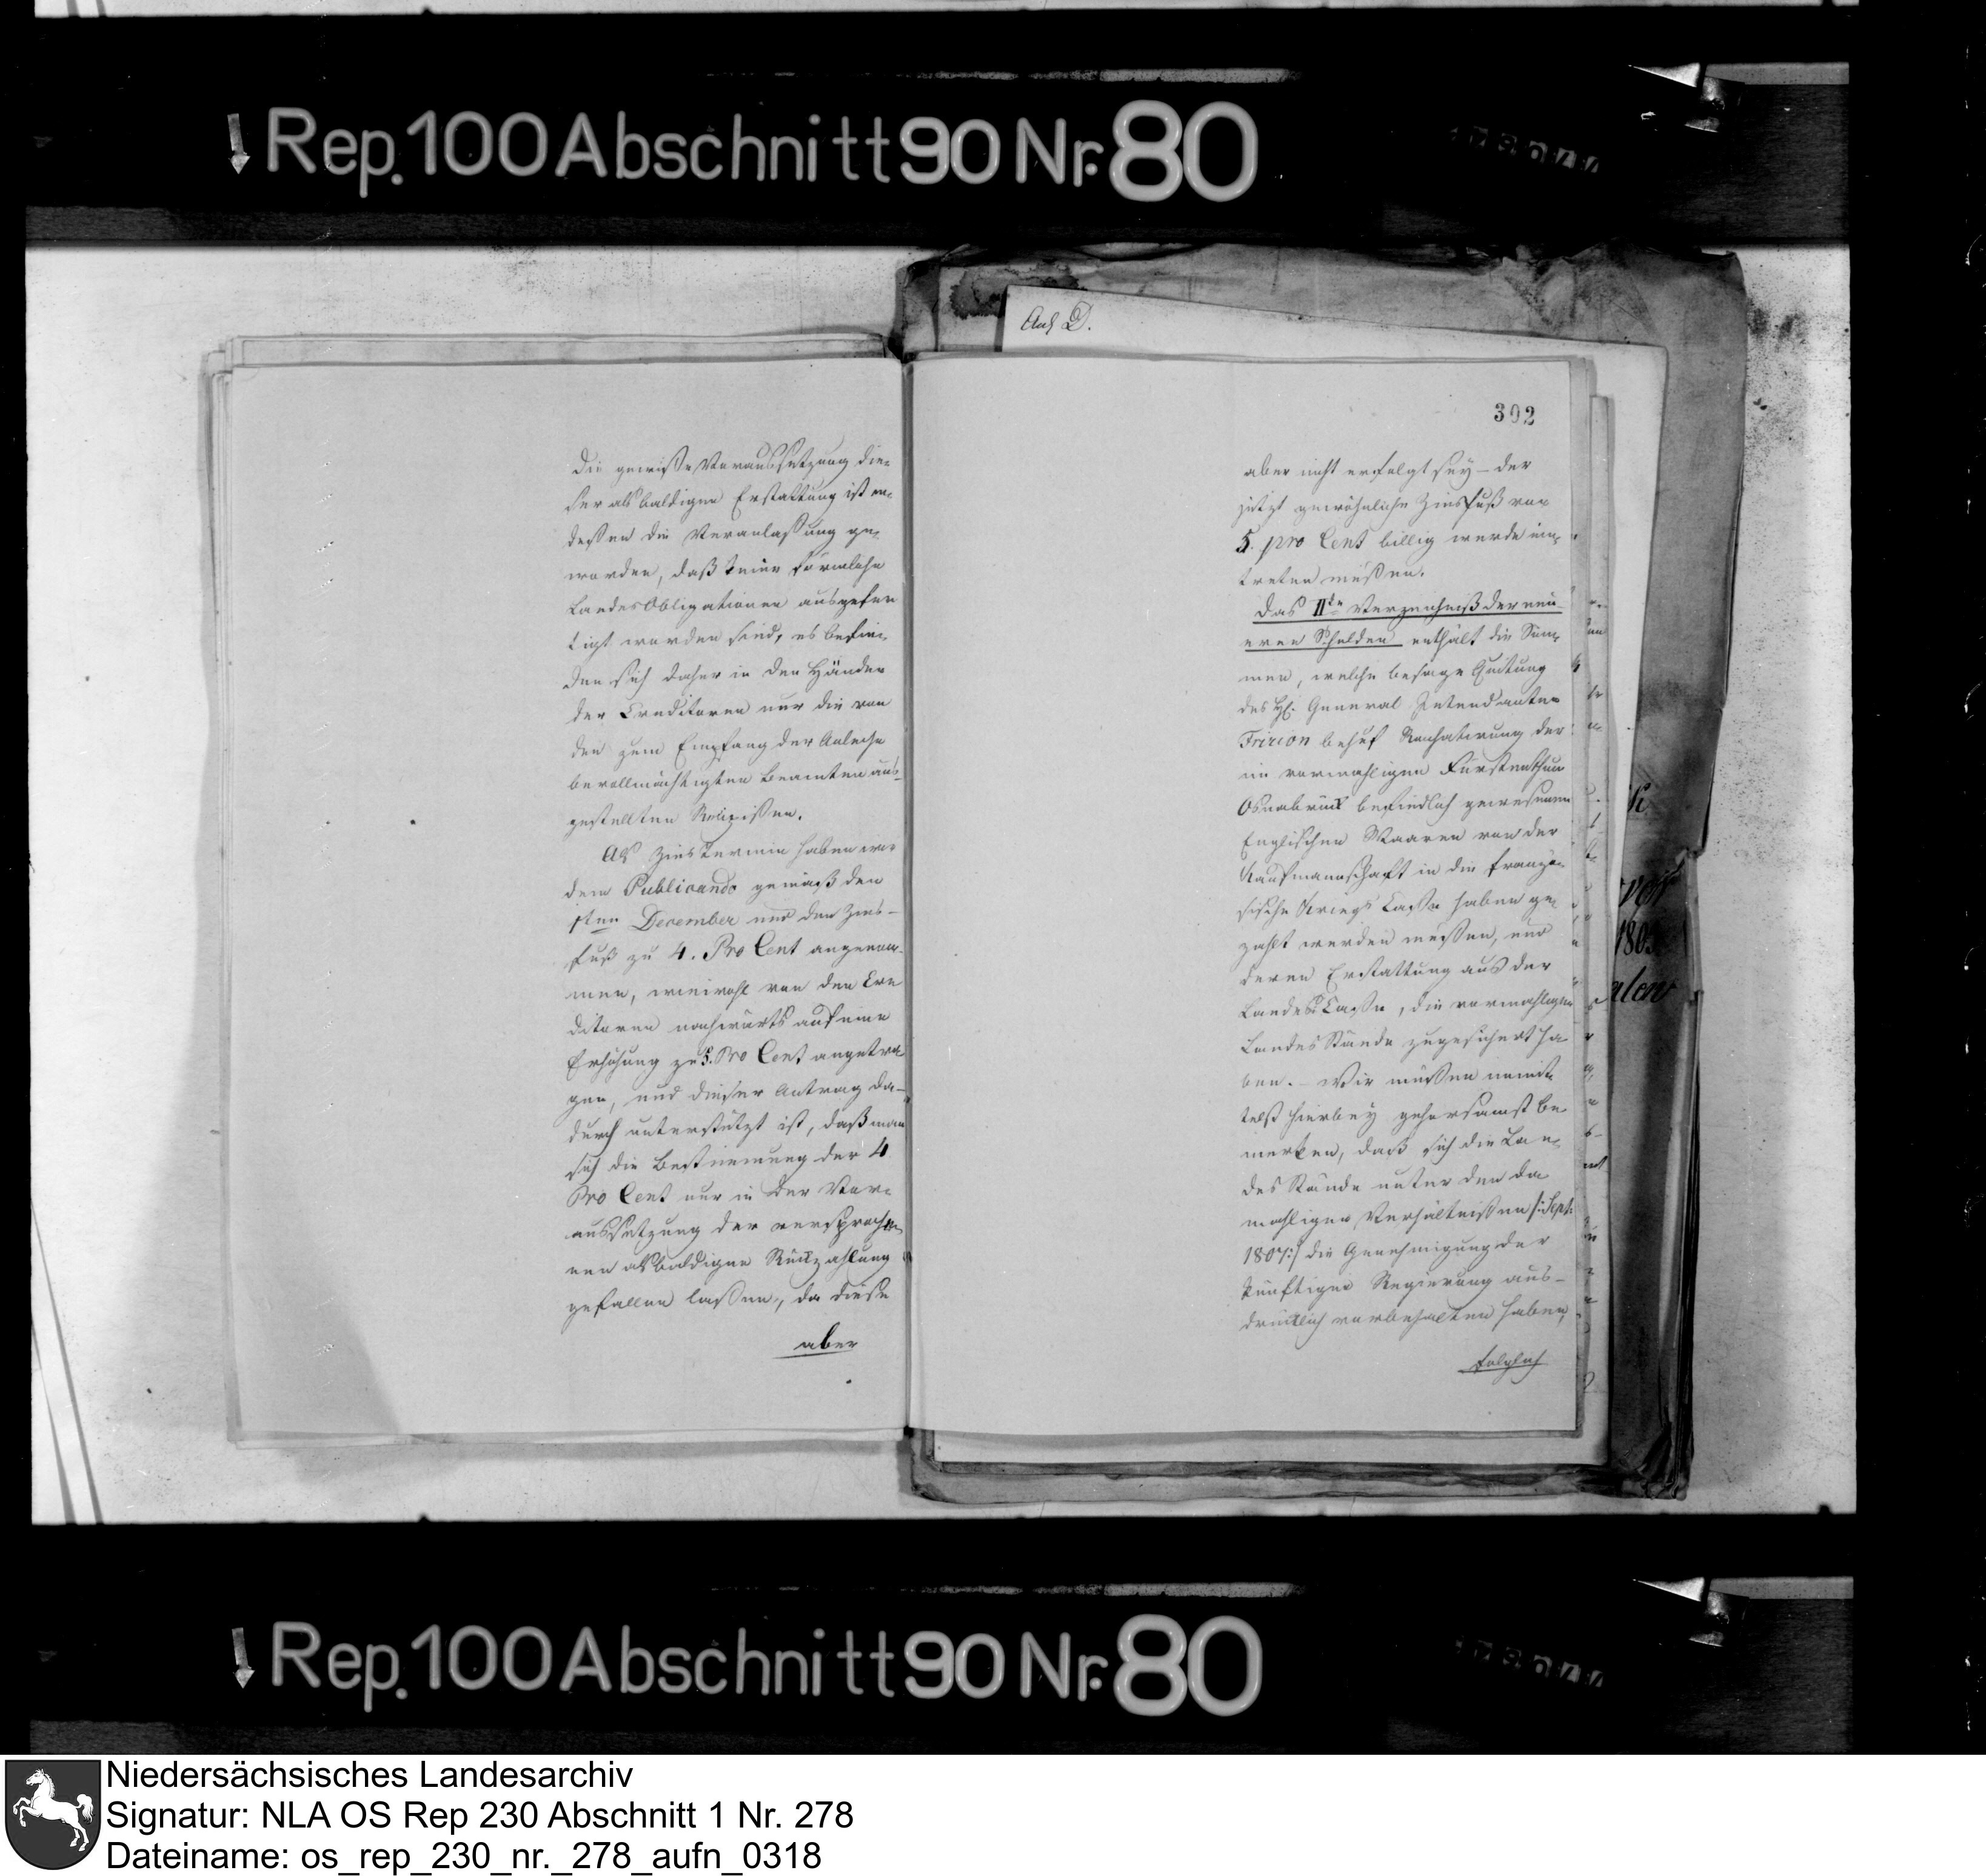 Rep. 100 Abschnitt 90 Nr. 80
Anl D.
302
die gewiße Voraussetzung die-
ser alsbaldigen Erstattung ist in-
deßen die Veranlaßung ge-
worden, daß keine förmliche
Landes Obligationen ausgefer
tigt worden sind, es befin-
den sich daher in den Händen
der Creditoren nur die von
den zum Empfang der Anleihe
bevollmächtigten Beamten aus-
gestellten Recepissen.
Als Zinstermin haben wir
dem Publicando gemäß den
1ten December und den Zins-
fuß zu 4. Pro Cent angenom-
men, wiewohl von den Cre
ditoren nachwärts auf eine
Erhöhung zu 5. Pro Cent angetra-
gen, und dieser Antrag da-
durch unterstützt ist, daß man
sich die Bestimmung der 4
Pro Cent nur in der Vor-
aussetzung der versproche-
nen alsbaldigen Rückzahlung
gefallen laßen, da diese
aber
aber nicht erfolgt sey - der
jetzt gewöhnliche Zinsfuß von
5. pro Cent billig werde ein-
treten müßen.
Das IIte Verzeichniß der neu-
eren Schulden enthält die Sum-
men, welche besage Quitung
des H. General Intendanten
Fririon behuf Rachatirung der
im vormahligen Fürstenthum
Osnabrück befindlich gewesenen
Englischen Waaren von der
Kaufmannschaft in die franzö-
sische Kriegs Caße haben ge-
zahlt werden müßen, und
deren Erstattung aus der
Landes Caße, die vormahligen
Landes Stände zugesichert ha-
ben. - Wir müßen
hierbey gehorsamst be-
merken, daß sich die Lan-
des Stände unter den da
mahligen Verhältnißen /: Sept:
1807 :/ die Genehmigung der
künftigen Regierung aus-
drücklich vorbehalten haben,
folglich
Rep. 100 Abschnitt 90 Nr. 80
Niedersächsisches Landesarchiv
Signatur: NLA OS Rep 230 Abschnitt 1 Nr. 278
Dateiname: os_rep_230_nr._278_aufn_0318